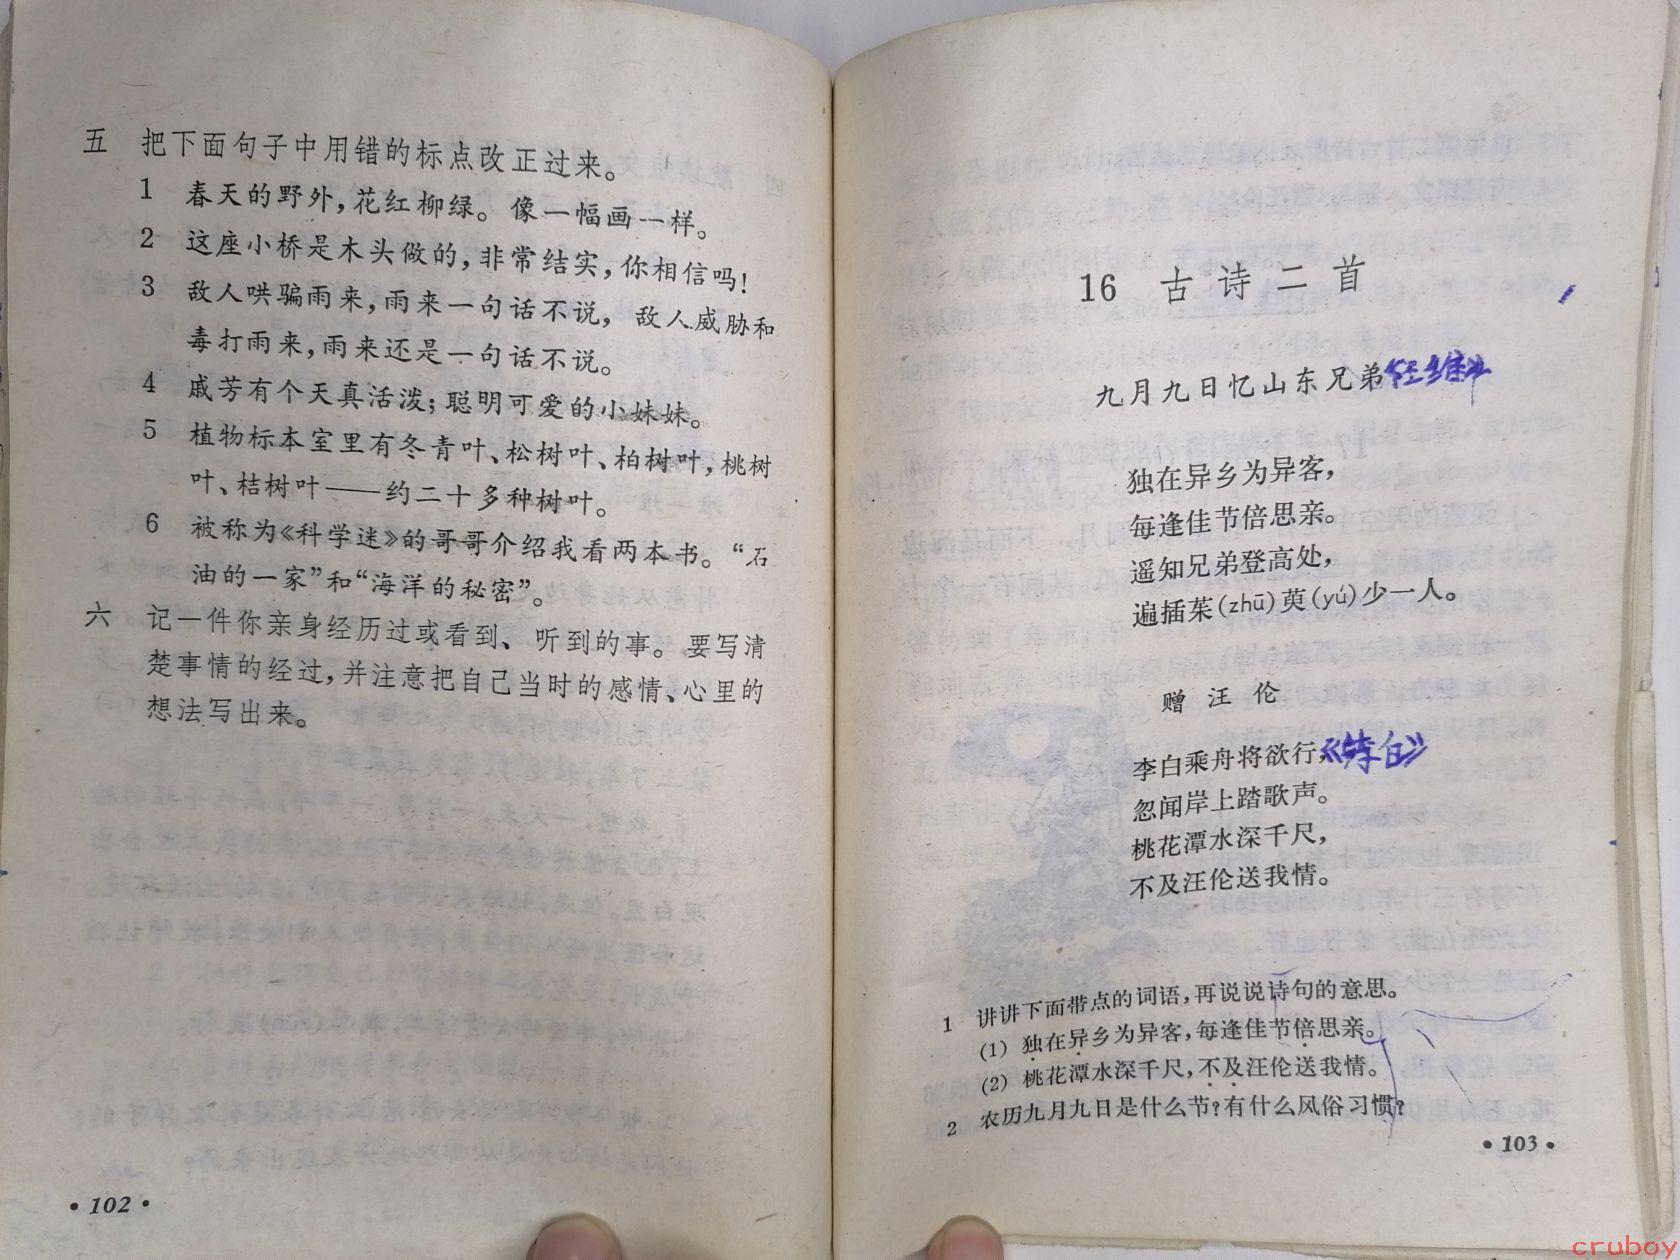 五 把下面句子中用错的标点改正过来。
1 春天的野外，花红柳绿。像一幅画一样。
2 这座小桥是木头做的，非常结实，你相信吗！
3 敌人哄骗雨来，雨来一句话不说，敌人威胁和
毒打雨来，雨来还是一句话不说。
4 戚芳有个天真活泼；聪明可爱的小妹妹。
5 植物标本室里有冬青叶、松树叶、柏树叶，桃树
叶、桔树叶——约二十多种树叶。
6 被称为《科学迷》的哥哥介绍我看两本书。“石
油的一家”和“海洋的秘密”。
六 记一件你亲身经历过或看到、听到的事。要写清
楚事情的经过，并注意把自己当时的感情、心里的
想法写出来。
•102•
16 古诗二首
九月九日忆山东兄弟
独在异乡为异客，
每逢佳节倍思亲。
遥知兄弟登高处，
遍插茱(zhū)萸(yú)少一人。
赠汪伦
李白乘舟将欲行，《李白》
忽闻岸上踏歌声。
桃花潭水深千尺，
不及汪伦送我情。
1 讲讲下面带点的词语，再说说诗句的意思。
(1) 独在异乡为异客，每逢佳节倍思亲。
(2) 桃花潭水深千尺，不及汪伦送我情。
2 农历九月九日是什么节？有什么风俗习惯？
•103•
cruboy